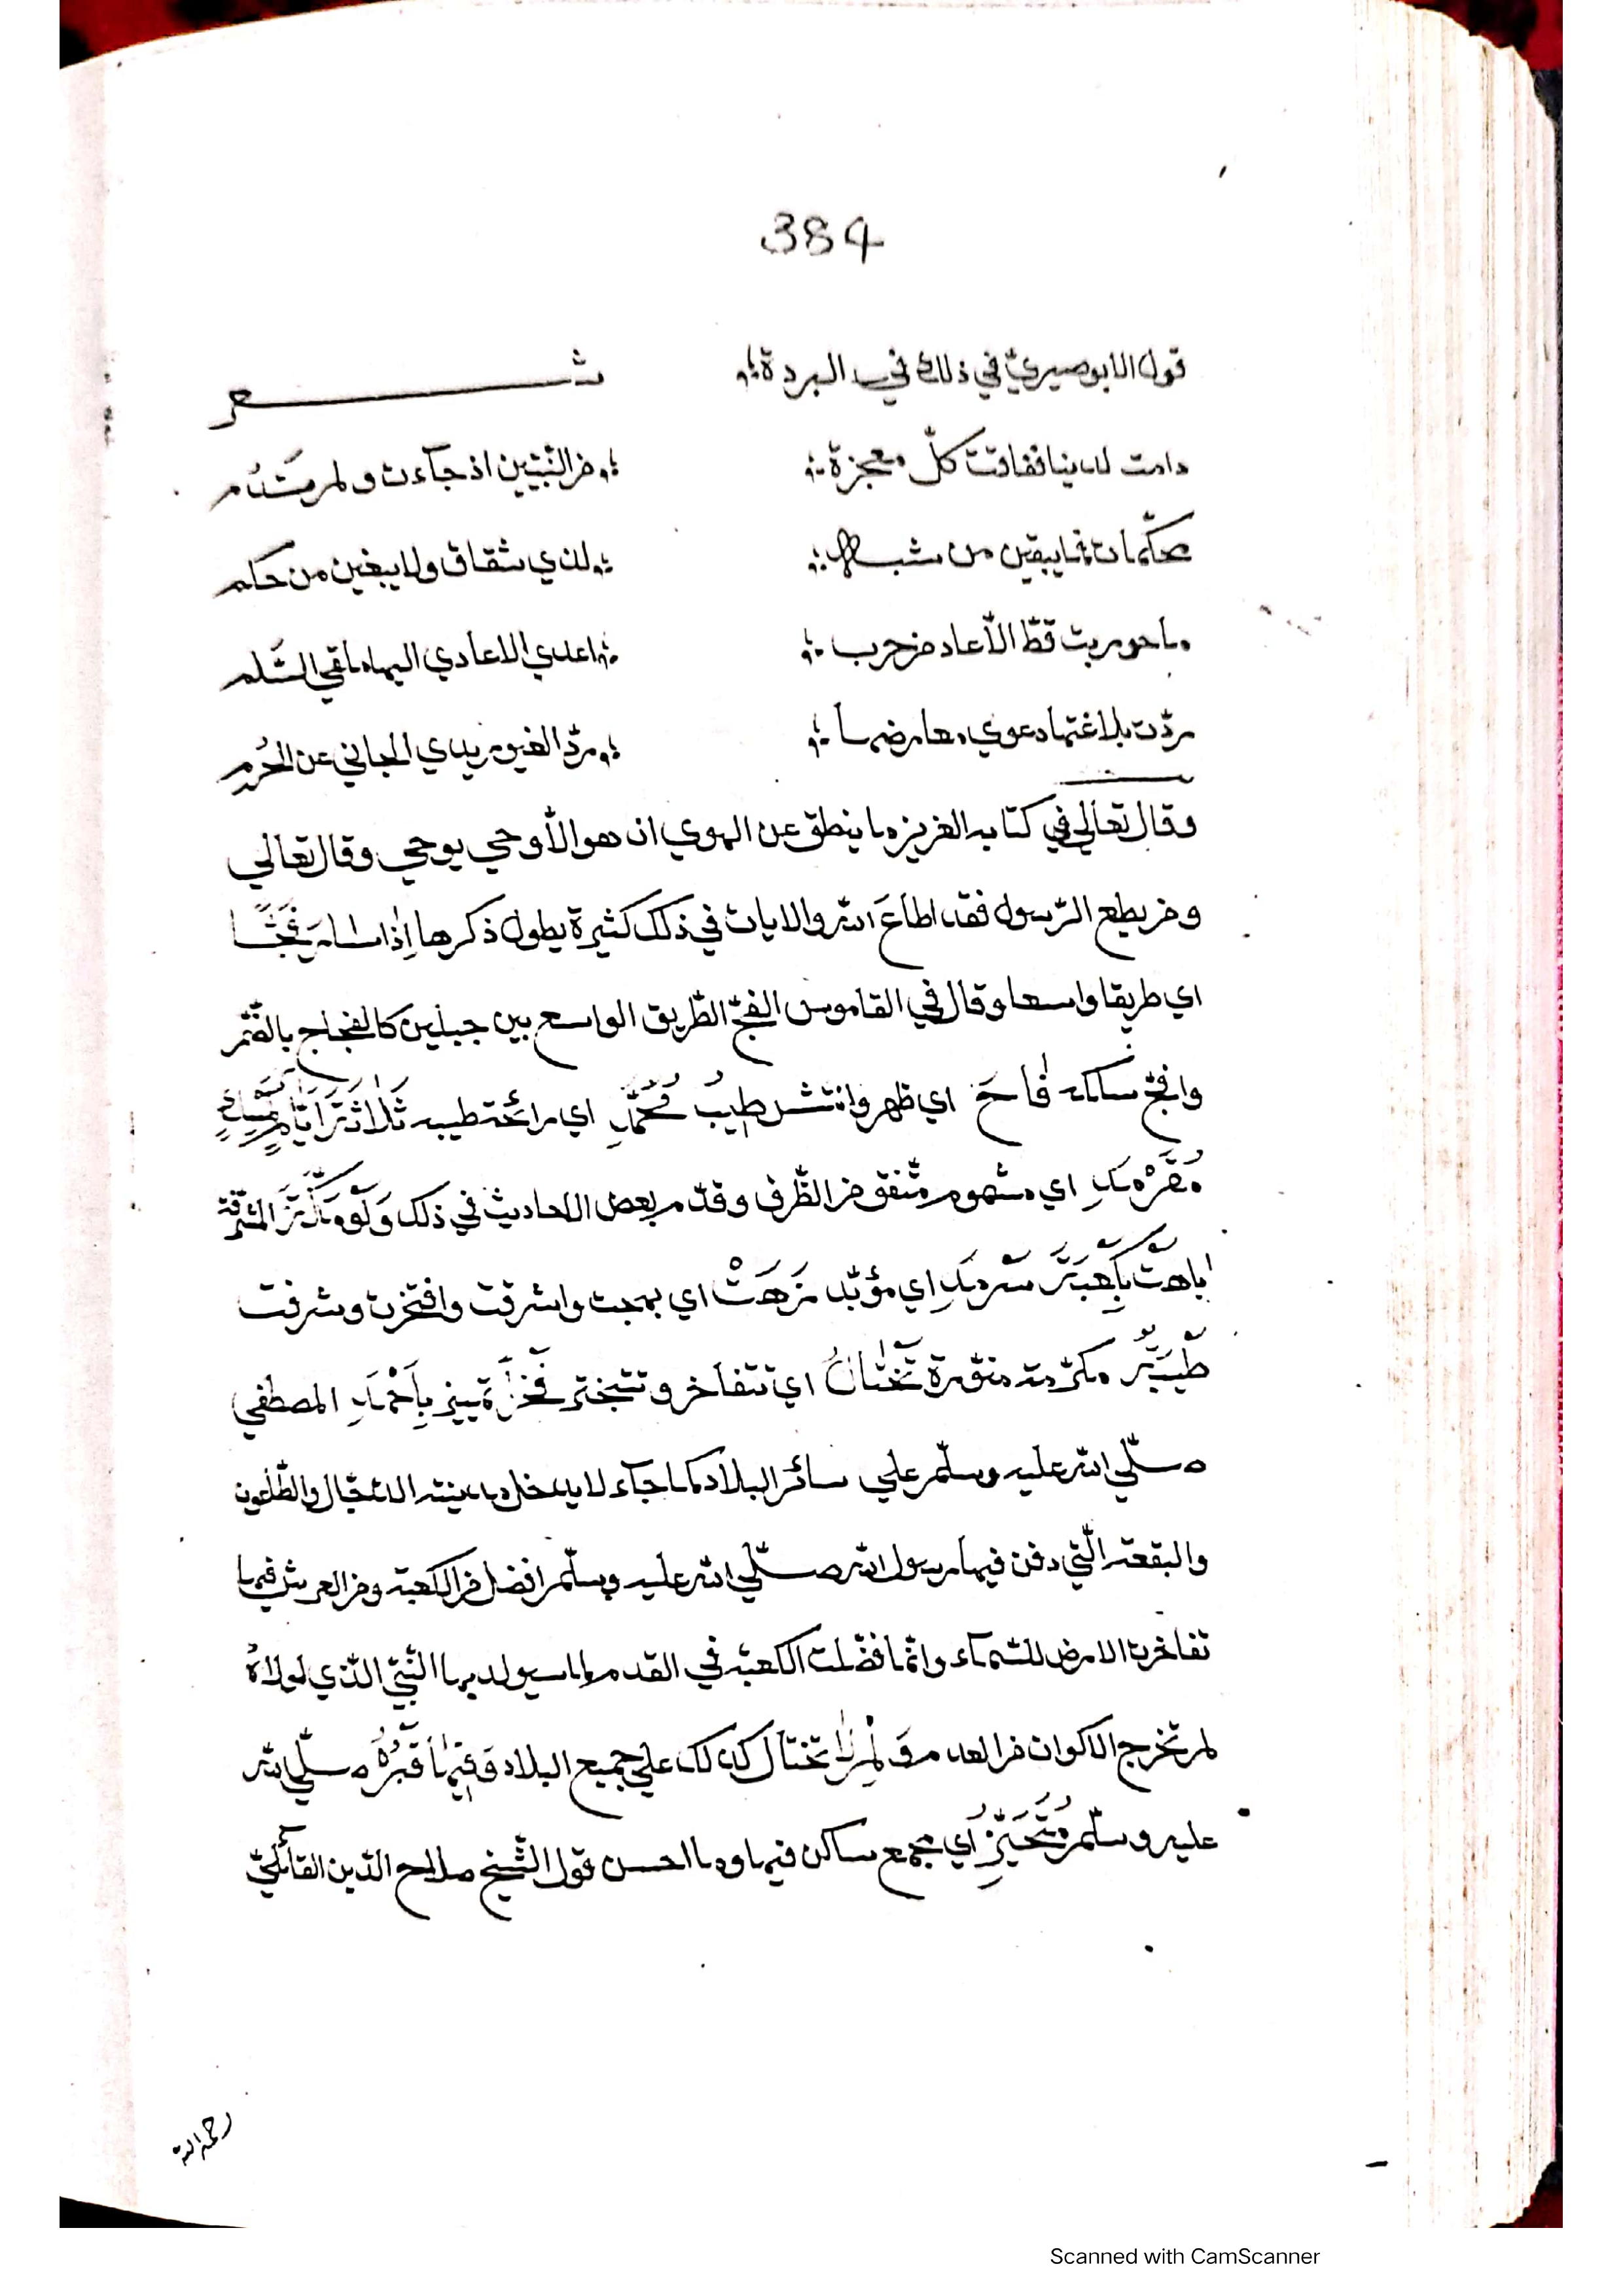 384
قول الابوصيريّ في ذلك في البردة شعر
دامت لدينا ففاقت كلّ معجزة من النّبيّين اذ جآءت ولم تَدُم
محكّمات فما يبقين من شبه لذي شقاق ولا يبغين من حكم
ما حوربت قطّ الّا عاد من حرب اعدي الاعادي اليها ملقي السَّلم
ردّت بلاغتها دعوي معارضها ردّ الغيور يدي الجاني عن الحُرَم
وقال تعالي في كتابه العزيز ما ينطق عن الهوي ان هو الّا وحي يوحي وقال تعالي
ومن يطع الرّسول فقد اطاعَ الله والايات في ذلك كثيرة يطول ذكرها اِذا سارَ فَجًّا
اي طريقا واسعا وقال في القاموس الفجّ الطّريق الواسع بين جبلين كالفجاج بالضّم
وافجّ سلكه فاحَ اي ظهر وانتشر طيبُ مُحَمَّدٍ اي رائحة طيبه ثَلاثَةَ اَيَّامٍ
اي مشهور متّفق من الطّرفي وقدّم بعض الاحاديث في ذلك وَ المشرّفة
باهَتْ بِكَعْبَةَ سَرْمَدٍ اي مؤبّد زَهَتْ اي بهجت واشرقت وافتخرت وشرفت
طَيْبَة مكرّمة منوّرة تَخْتالُ اي تتفاخر وتتبختر فَخراً تميز بِاَحْمَدِ المصطفي
صلّي الله عليه وسلّم علي سائر البلاد كما جآء لا يدخل مدينته الدجّال والطّاعون
والبقعة الّتي دفن فيها رسول الله صلّي الله عليه وسلّم افضل من الكعبة ومن العرش فبها
تفاخرت الارض للسّمآء وانّما فضّلت الكعبة في القدم لما سيولد بها النّبيّ الّذي لولاهُ
لم تخرج الاكوان من العدم وَلِمْ لا تختال كذلك علي جميع البلاد وَفيها قَبْرُهُ صلّي الله
عليه وسلّم مُتَحَيِّزٌ اي مجمع ساكن فيها وما احسن قول الشّيخ صلاح الدّين القائليّ
رحمه الله
Scanned with CamScanner